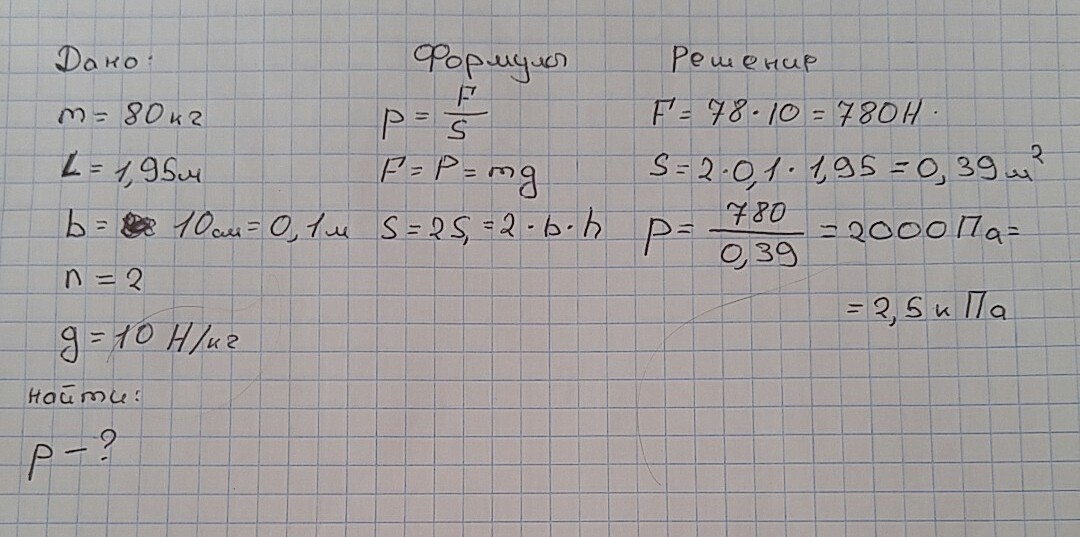 Дано:
m = 80 кг
L = 1,95м
b = 10см = 0,1м
n = 2
g = 10 Н/кг
найти:
p – ?
Формулы
p = F/S
F = P = mg
S = 2S₁ = 2·b·h
Решение
F = 78·10 = 780Н.
S = 2·0,1·1,95 = 0,39м²
p = 780/0,39 = 2000Па =
= 2,5кПа